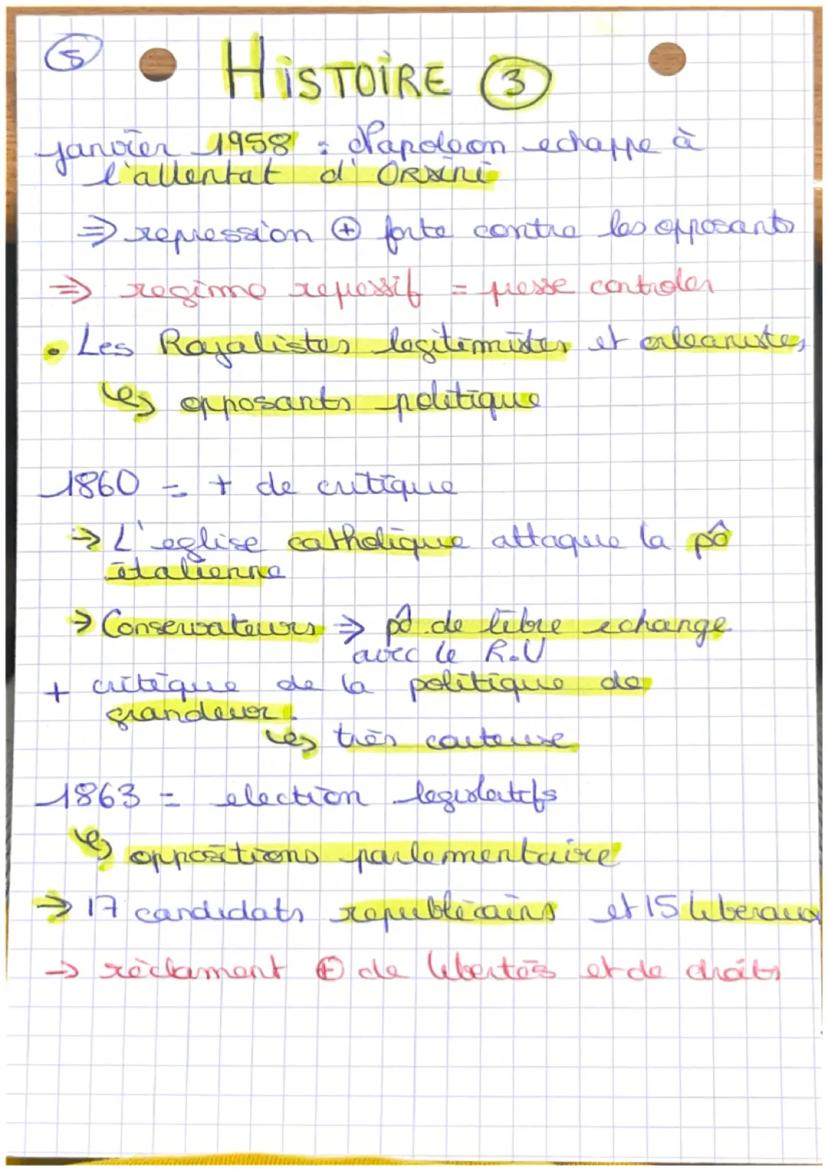 5
HiSTOiRE 3
janvier 1958 : Napoleon echappe à
l'attentat d' ORSiNi
⇒ repression ⊕ forte contre les opposants
⇒ regime repessif = presse controler
• Les Royalistes legitimistes et orleanistes
↳ opposants politique
1860 = + de critique
→ L'eglise catholique attaque la pô
italienne
→ Conservateurs ⇒ pô de libre echange
avec le R.U
+ critique de la politique de
grandeur
↳ très couteuse
1863 = election legislatifs
↳ oppositions parlementaire
→ 17 candidats republicains et 15 liberaux
→ réclament ⊕ de libertés et de droits